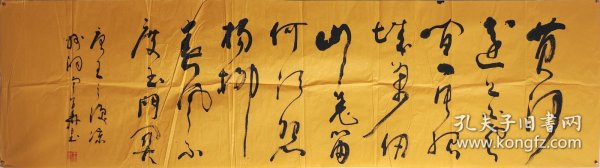 黄河
远上白云
间一片孤
城万仞
山羌笛
何须怨
杨柳
春风不
度玉门关
唐王之涣凉
州词
孔夫子旧书网